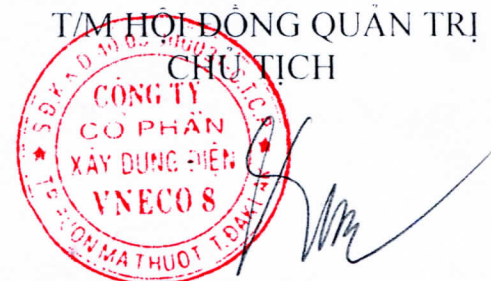 T/M HỘI ĐỒNG QUẢN TRỊ
CHỦ TỊCH
CÔNG TY
CỔ PHẦN
XÂY DỰNG ĐIỆN
VNECO 8
TP BUÔN MA THUỘT T.ĐAKLAK